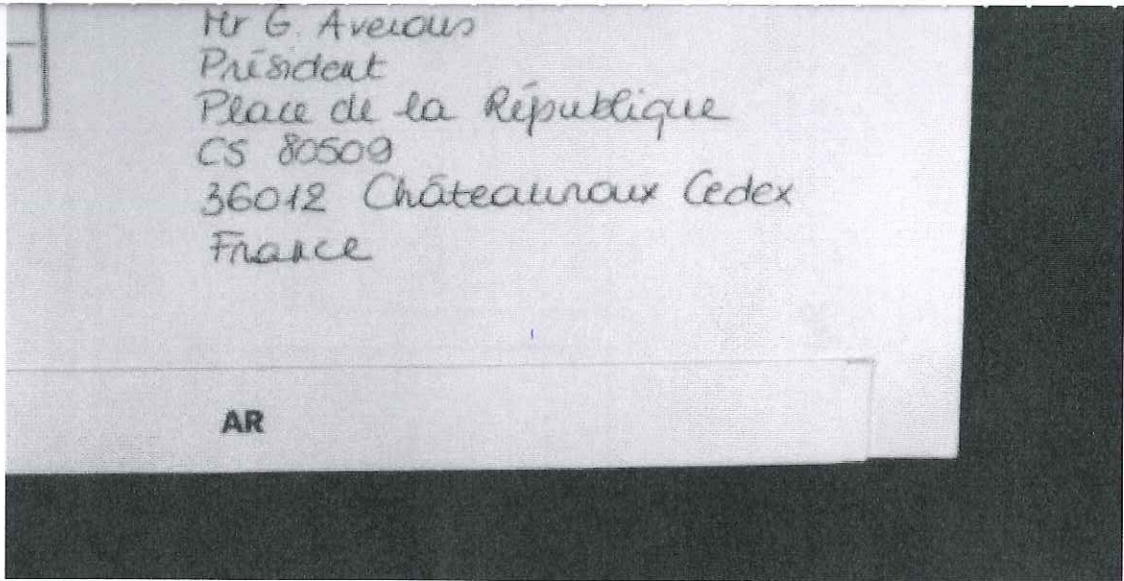 Mr G. Averous
Président
Place de la République
CS 80509
36012 Châteauroux Cedex
France
AR